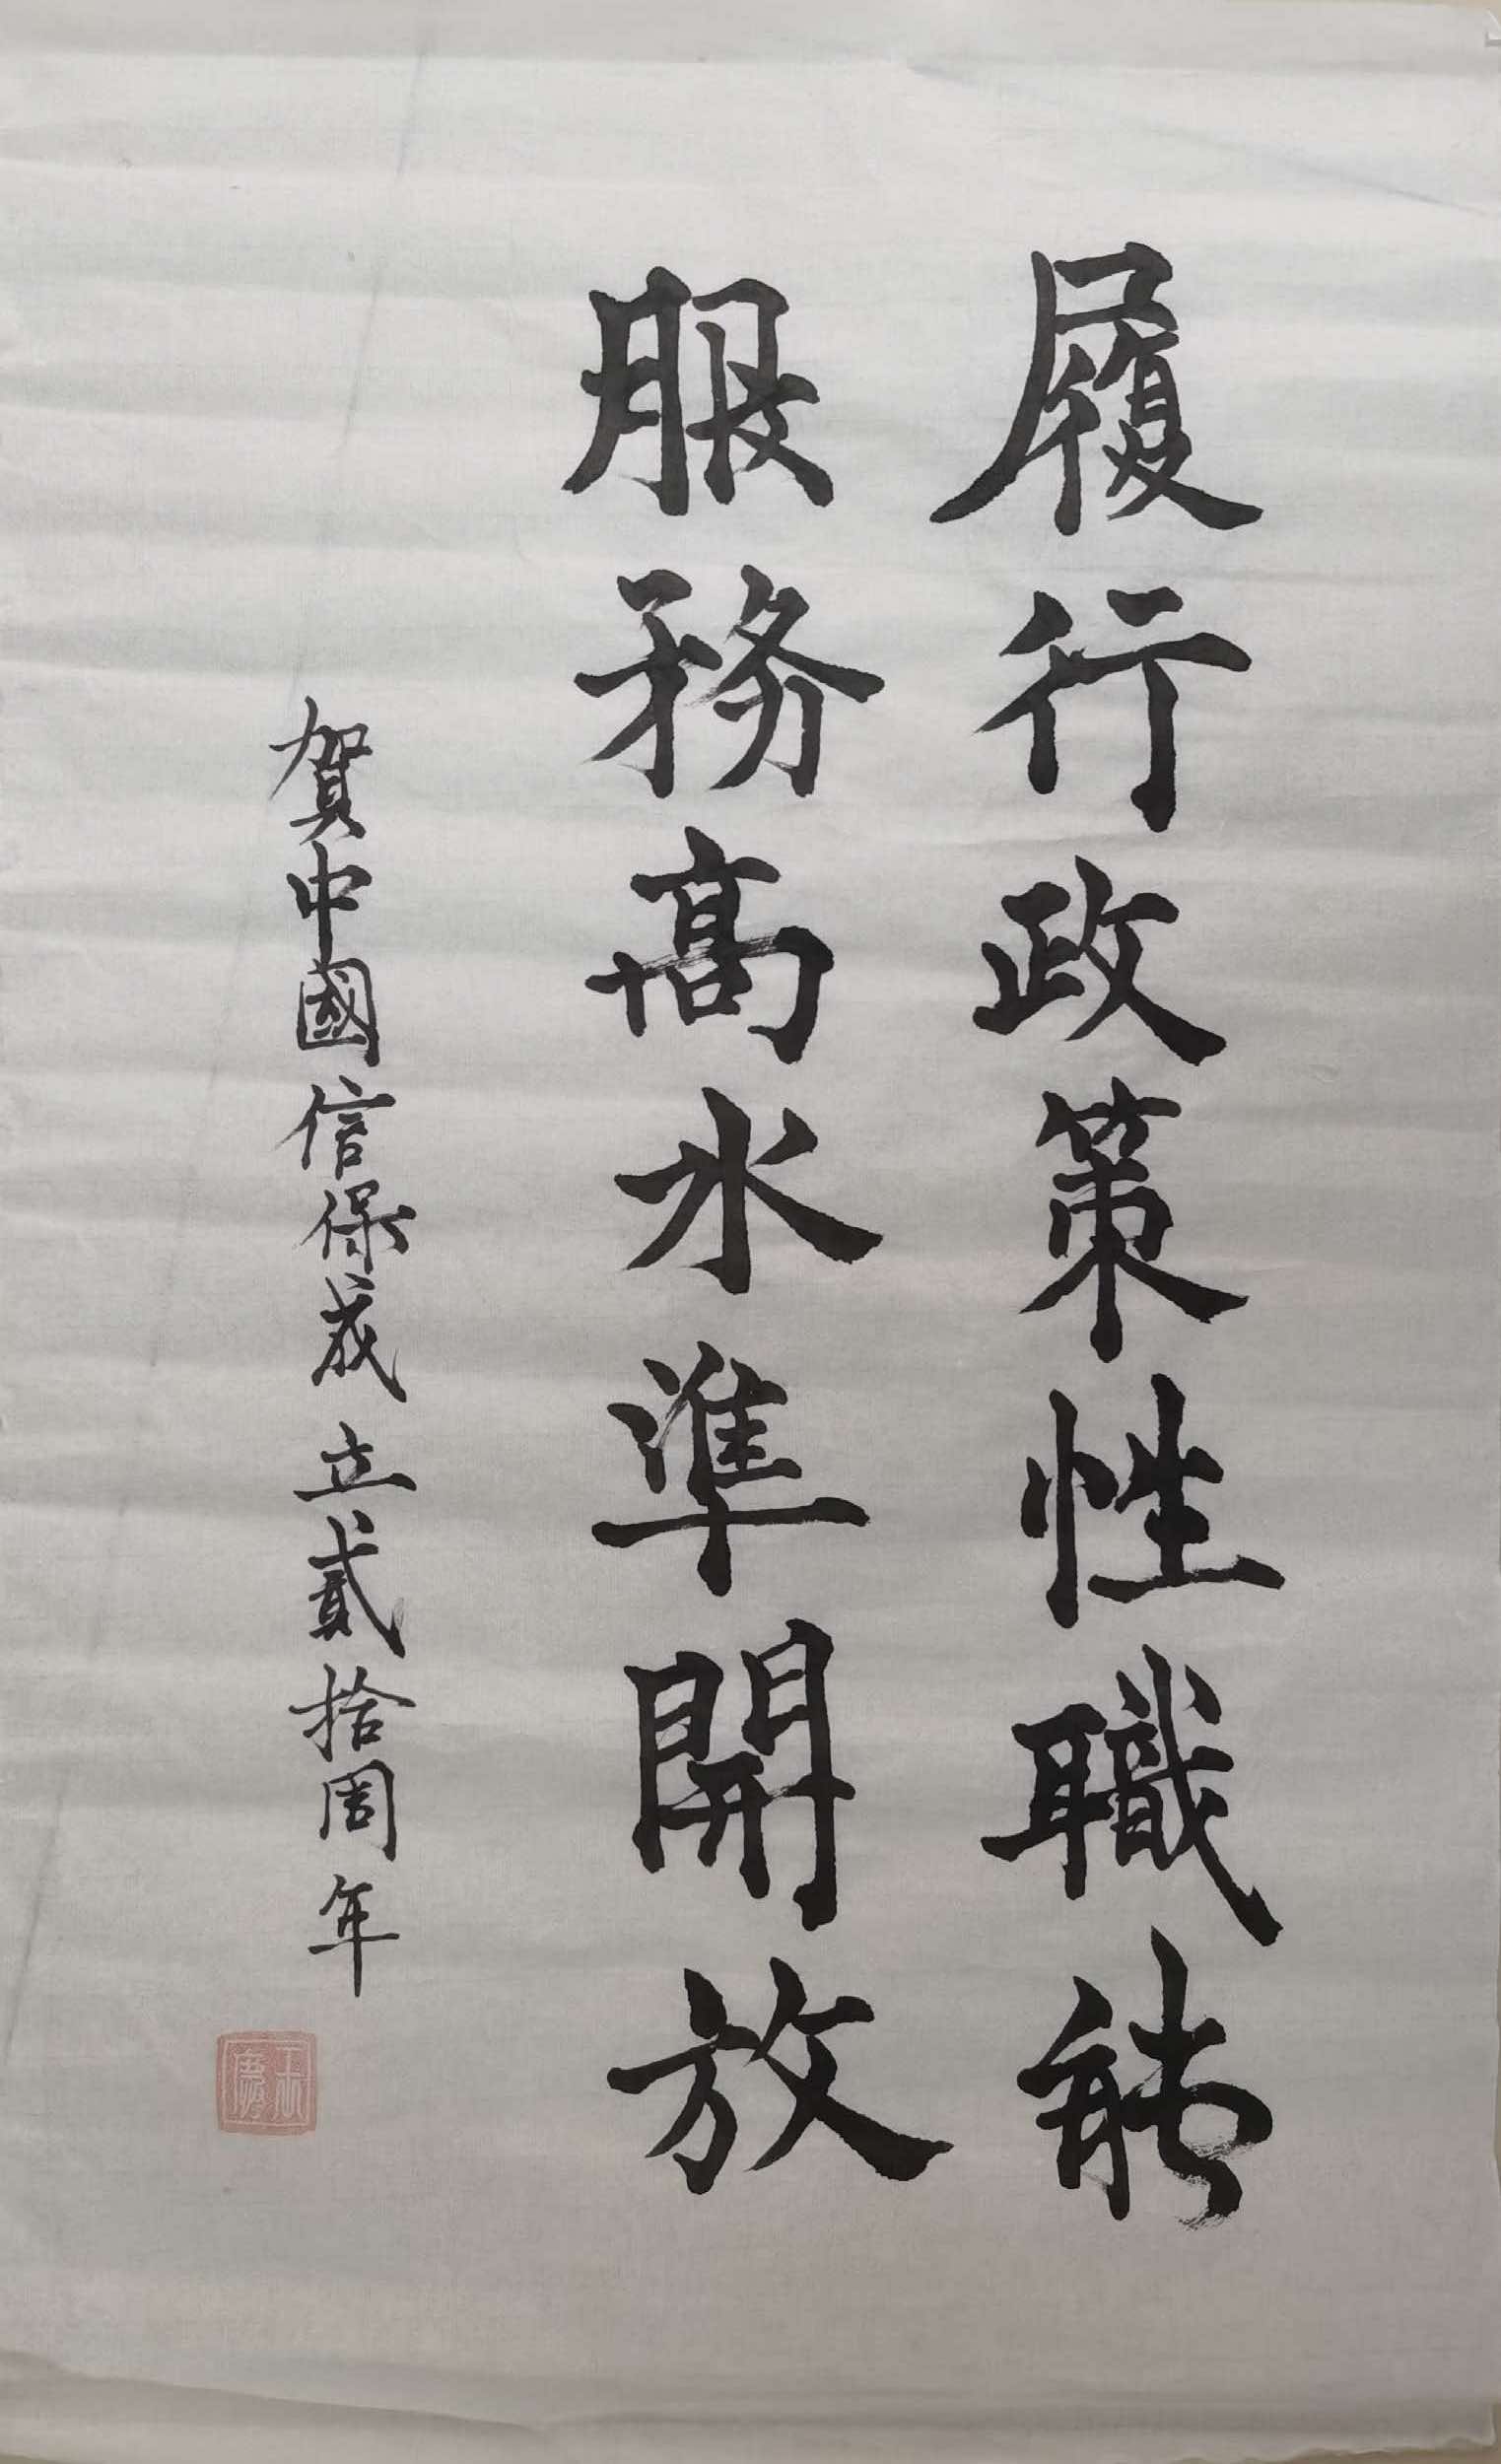 履行政策性職能
服務高水準開放
賀中國信保成立貳拾周年